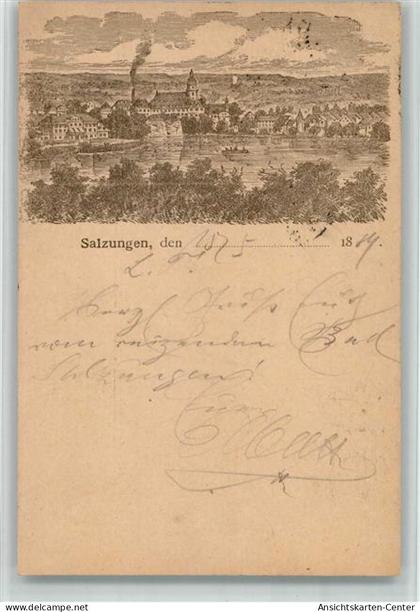 Salzungen, den 15/5 1889.
Herzl. Gruß Euch
vom reizenden Bad
Salzungen!
Eure
delcampe.net
Ansichtskarten-Center